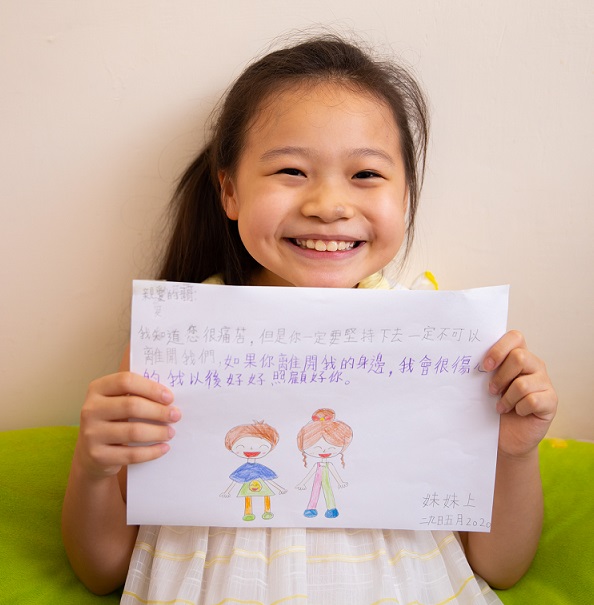 親愛的
我知道您很痛苦，但是你一定要堅持下去一定不可以
離開我們，如果你離開我的身邊，我會很傷心
的，我以後好好照顧好你。
妹妹上
二九日五月2020